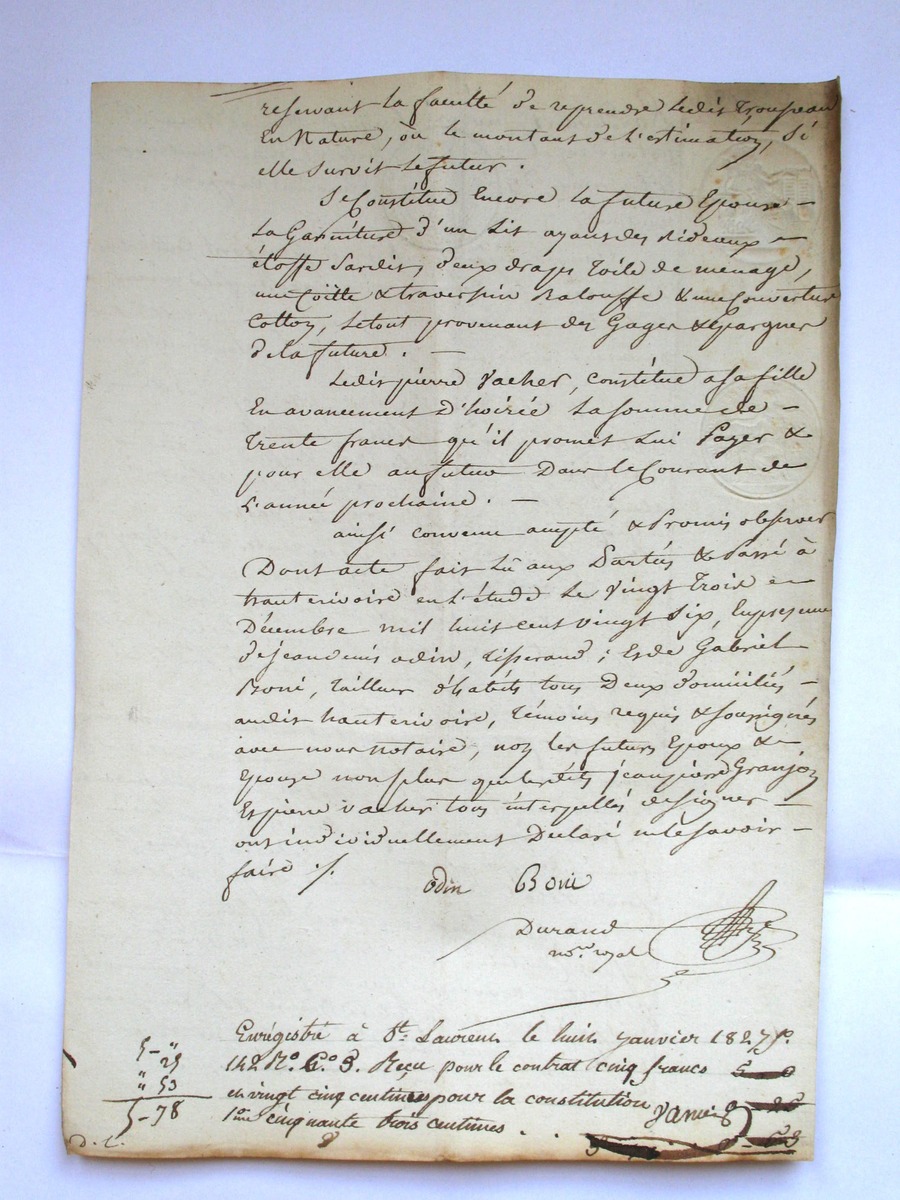 reservant la faculté de reprendre ledit trousseau
En Nature, où le montant de l'estimation, Si
elle survit le futur.
Se Constitue Encore la future Epouse –
La Garniture d'un Lit ayant des Rideaux –
étoffe Sardis, deux draps toile de menage,
une Coëtte & traversin Balouffe & une Couverture
Cotton, le tout provenant des Gages & Epargnes
de la future. –
Ledit pierre Vacher, Constitue a sa fille
En avancement d'hoirie la somme de –
trente francs qu'il promet Lui Payer &
pour elle au futur Dans le Courant de
L'année prochaine. –
ainsi convenu accepté & Promis observer
Dont acte fait Lû aux Parties & Passé à
hauterivoire en L'étude le Vingt Trois
Décembre mil huit cent vingt Six, En presence
de jean denis odin, tisserand; Et de Gabriel
Boni, tailleur d'habits tous Deux domiciliés –
audit hauterivoire, témoins requis & soussignés
avec nous Notaire, non les futurs Epoux &
Epouse non plus que lesdits jean pierre Granjon
Et pierre Vacher tous interpellés de signer –
ont individuellement Declaré ne le savoir –
faire ./.
odin Boni
Durand
no.re royal
Enrégistré à St. Laurent le huit janvier 1827 fo.
142 Ro. Co. 3. Reçu pour le contrat cinq francs 5 – 0
5 – "
" 25
" 53
5 – 78
et vingt cinq centimes pour la constitution
1ème cinquante trois centimes . .
D. L.